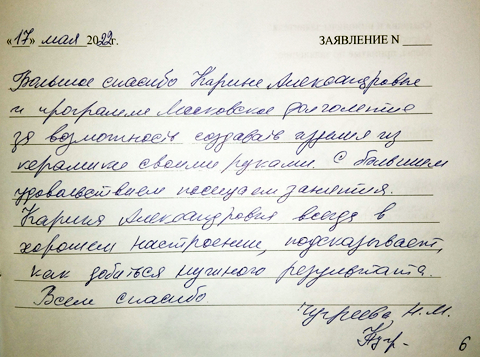 «17» мая 2022г. ЗАЯВЛЕНИЕ N
Большое спасибо Карине Александровне
и программе Московское долголетие
за возможность создавать изделия из
керамики своими руками. С большим
удовольствием посещаем занятия.
Карина Александровна всегда в
хорошем настроении, подсказывает,
как добиться нужного результата.
Всем спасибо
Н.М.
6